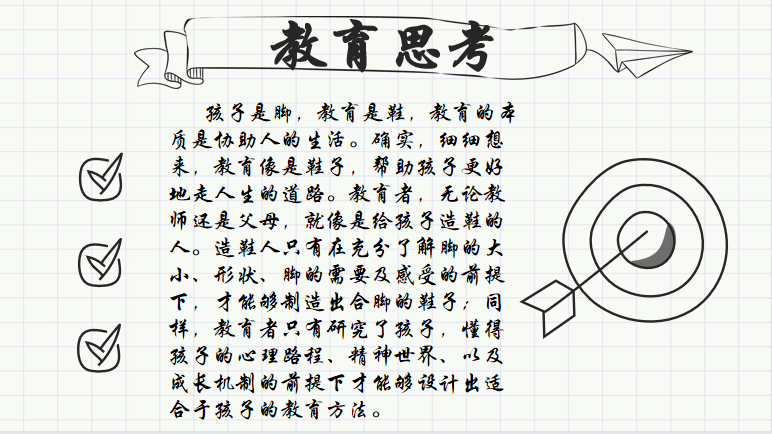 教育思考
孩子是脚，教育是鞋，教育的本
质是协助人的生活。确实，细细想
来，教育像是鞋子，帮助孩子更好
地走人生的道路。教育者，无论教
师还是父母，就像是给孩子造鞋的
人。造鞋人只有在充分了解脚的大
小、形状、脚的需要及感受的前提
下，才能够制造出合脚的鞋子；同
样，教育者只有研究了孩子，懂得
孩子的心理路程、精神世界、以及
成长机制的前提下才能够设计出适
合于孩子的教育方法。